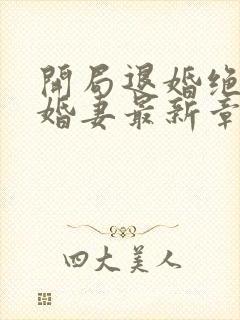 開局退婚绝
婚妻最新章
四大美人